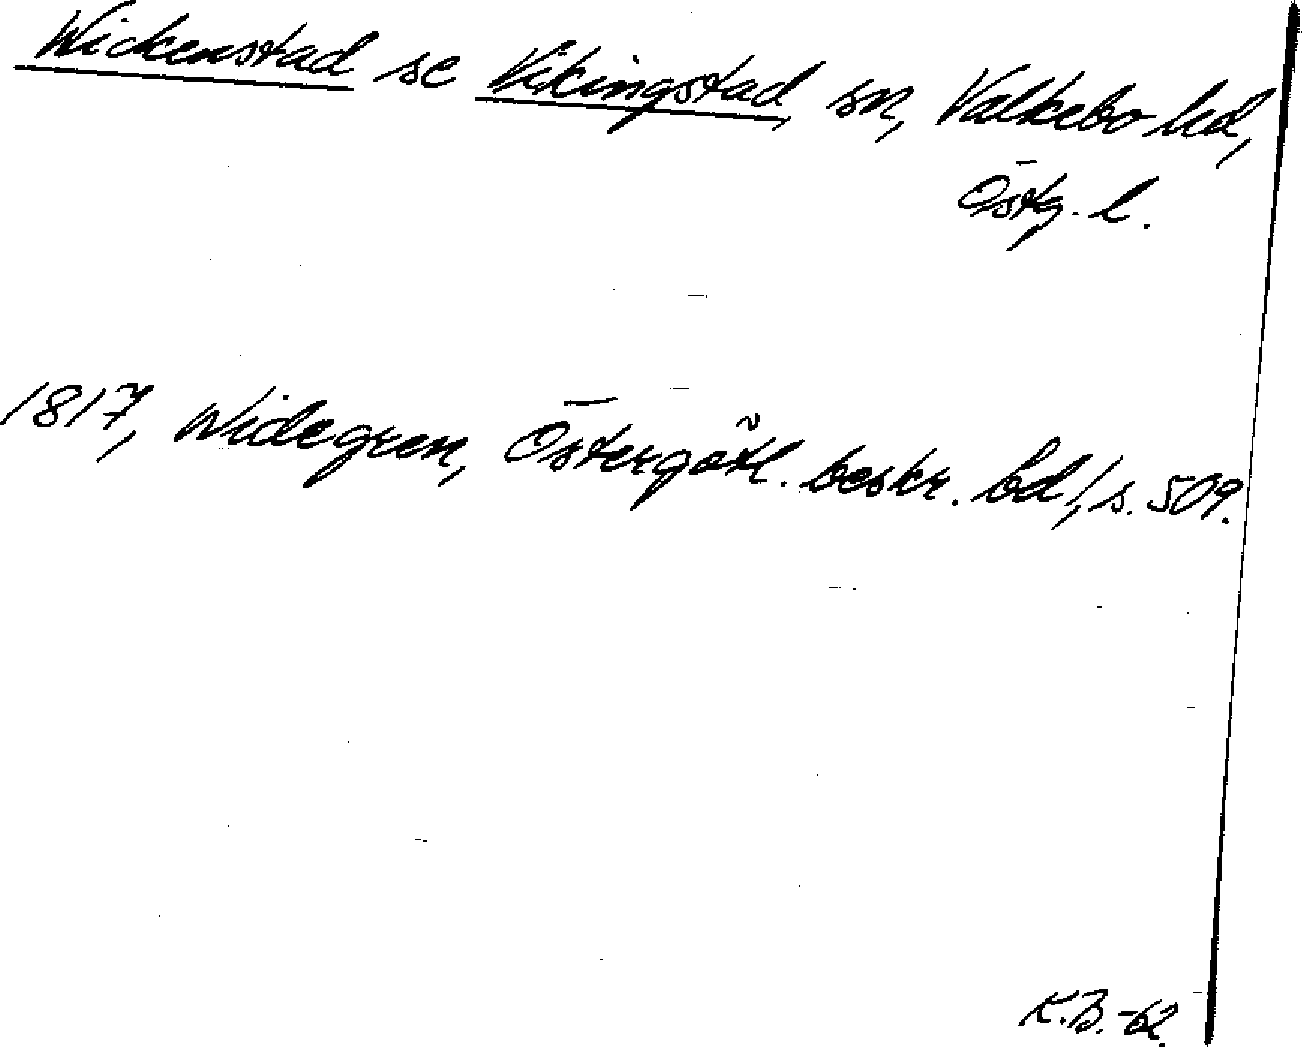 Wickenstad se Vikingstad sn, Valkebo hd,
Östg. l.
1817, Widegren, Östergötl. beskr. bd 1, s. 509.
K.B.-62.